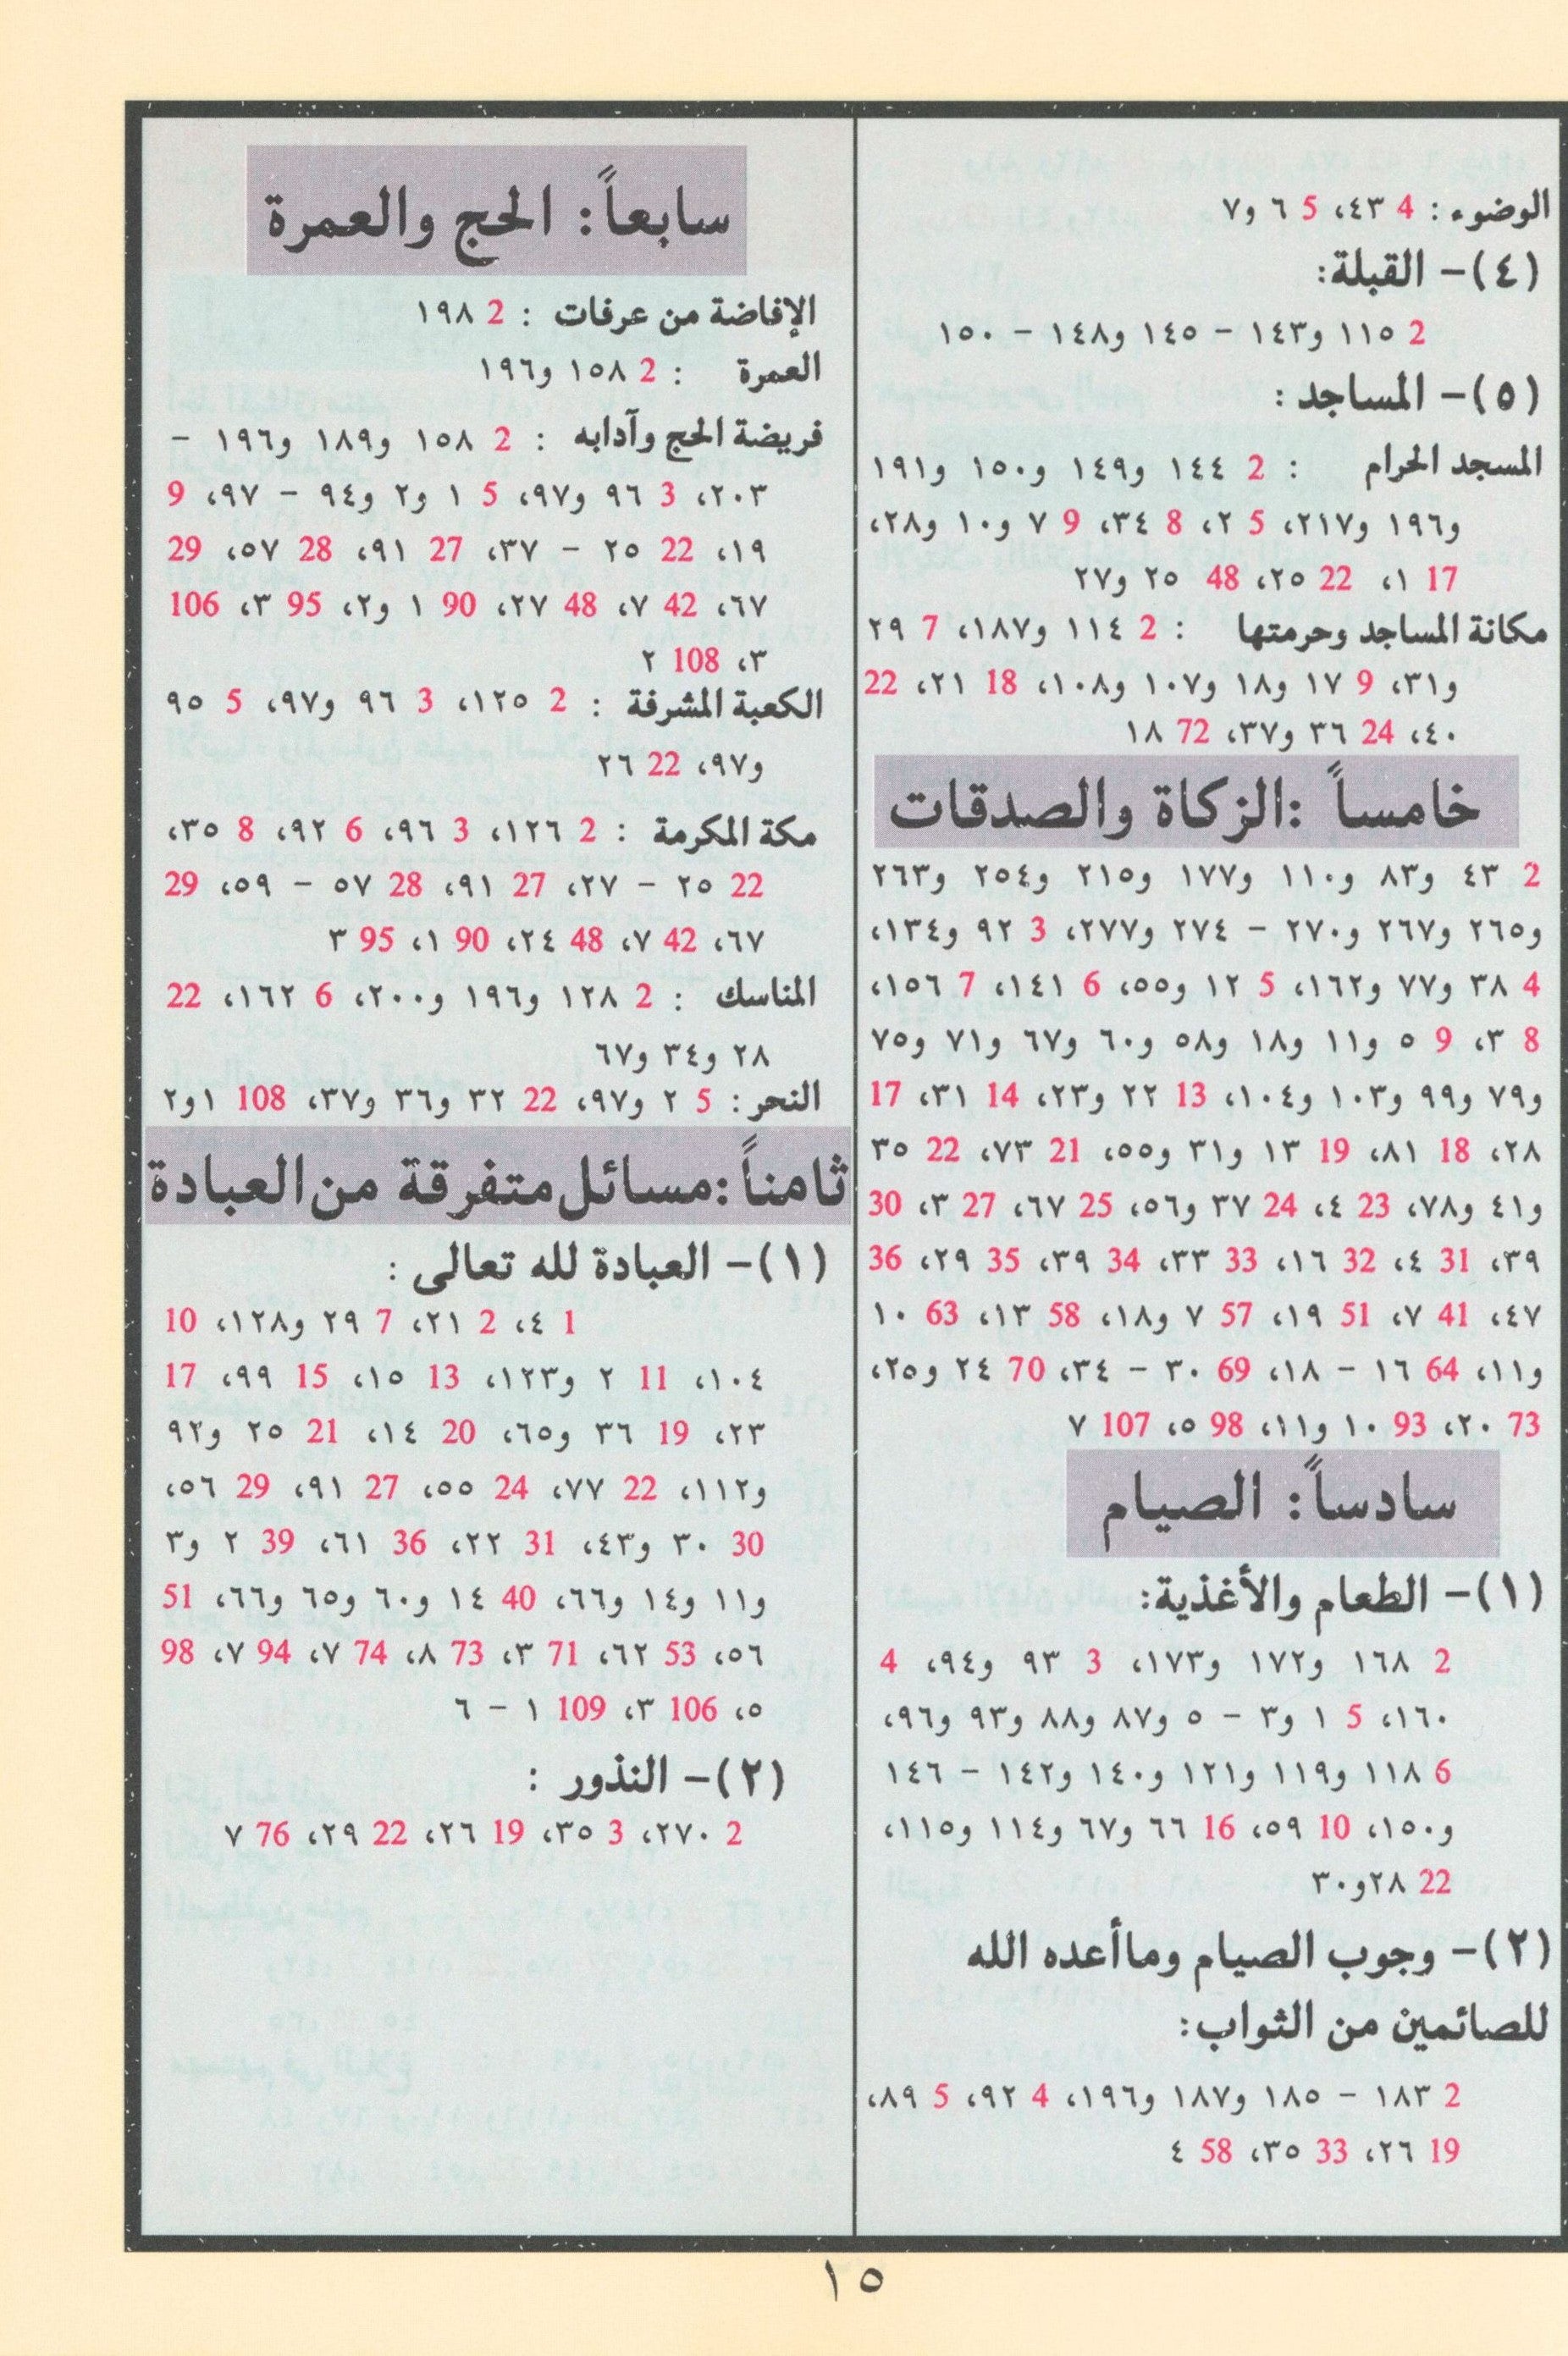 الوضوء : 4 ٤٣، 5 ٦ و٧
(٤)- القبلة:
2 ١١٥ و١٤٣ - ١٤٥ و١٤٨ - ١٥٠
(٥)- المساجد :
المسجد الحرام : 2 ١٤٤ و١٤٩ و١٥٠ و١٩١
و١٩٦ و٢١٧، 5 ٢، 8 ٣٤، 9 ٧ و١٠ و٢٨،
17 ١، 22 ٢٥، 48 ٢٥ و٢٧
مكانة المساجد وحرمتها : 2 ١١٤ و١٨٧، 7 ٢٩
و٣١، 9 ١٧ و١٨ و١٠٧ و١٠٨، 18 ٢١، 22
٤٠، 24 ٣٦ و٣٧، 72 ١٨
خامساً :الزكاة والصدقات
2 ٤٣ و٨٣ و١١٠ و١٧٧ و٢١٥ و٢٥٤ و٢٦٣
و٢٦٥ و٢٦٧ و٢٧٠ - ٢٧٤ و٢٧٧، 3 ٩٢ و١٣٤،
4 ٣٨ و٧٧ و١٦٢، 5 ١٢ و٥٥، 6 ١٤١، 7 ١٥٦،
8 ٣، 9 ٥ و١١ و١٨ و٥٨ و٦٠ و٦٧ و٧١ و٧٥
و٧٩ و٩٩ و١٠٣ و١٠٤، 13 ٢٢ و٢٣، 14 ٣١، 17
٢٨، 18 ٨١، 19 ١٣ و٣١ و٥٥، 21 ٧٣، 22 ٣٥
و٤١ و٧٨، 23 ٤، 24 ٣٧ و٥٦، 25 ٦٧، 27 ٣، 30
٣٩، 31 ٤، 32 ١٦، 33 ٣٣، 34 ٣٩، 35 ٢٩، 36
٤٧، 41 ٧، 51 ١٩، 57 ٧ و١٨، 58 ١٣، 63 ١٠
و١١، 64 ١٦ - ١٨، 69 ٣٠ - ٣٤، 70 ٢٤ و٢٥،
73 ٢٠، 93 ١٠ و١١، 98 ٥، 107 ٧
سادساً: الصيام
(١)- الطعام والأغذية:
2 ١٦٨ و١٧٢ و١٧٣، 3 ٩٣ و٩٤، 4
١٦٠، 5 ١ و٣ - ٥ و٨٧ و٨٨ و٩٣ و٩٦،
6 ١١٨ و١١٩ و١٢١ و١٤٠ و١٤٢ - ١٤٦
و١٥٠، 10 ٥٩، 16 ٦٦ و٦٧ و١١٤ و١١٥،
22 ٢٨و٣٠
(٢)- وجوب الصيام وماأعده الله
للصائمين من الثواب:
2 ١٨٣ - ١٨٥ و١٨٧ و١٩٦، 4 ٩٢، 5 ٨٩،
19 ٢٦، 33 ٣٥، 58 ٤
سابعاً: الحج والعمرة
الإفاضة من عرفات : 2 ١٩٨
العمرة : 2 ١٥٨ و١٩٦
فريضة الحج وآدابه : 2 ١٥٨ و١٨٩ و١٩٦ -
٢٠٣، 3 ٩٦ و٩٧، 5 ١ و٢ و٩٤ - ٩٧، 9
١٩، 22 ٢٥ - ٣٧، 27 ٩١، 28 ٥٧، 29
٦٧، 42 ٧، 48 ٢٧، 90 ١ و٢، 95 ٣، 106
٣، 108 ٢
الكعبة المشرفة : 2 ١٢٥، 3 ٩٦ و٩٧، 5 ٩٥
و٩٧، 22 ٢٦
مكة المكرمة : 2 ١٢٦، 3 ٩٦، 6 ٩٢، 8 ٣٥،
22 ٢٥ - ٢٧، 27 ٩١، 28 ٥٧ - ٥٩، 29
٦٧، 42 ٧، 48 ٢٤، 90 ١، 95 ٣
المناسك : 2 ١٢٨ و١٩٦ و٢٠٠، 6 ١٦٢، 22
٢٨ و٣٤ و٦٧
النحر : 5 ٢ و٩٧، 22 ٣٢ و٣٦ و٣٧، 108 ١و٢
ثامناً :مسائل متفرقة من العبادة
(١)- العبادة لله تعالى :
1 ٤، 2 ٢١، 7 ٢٩ و١٢٨، 10
١٠٤، 11 ٢ و١٢٣، 13 ١٥، 15 ٩٩، 17
٢٣، 19 ٣٦ و٦٥، 20 ١٤، 21 ٢٥ و٩٢
و١١٢، 22 ٧٧، 24 ٥٥، 27 ٩١، 29 ٥٦،
30 ٣٠ و٤٣، 31 ٢٢، 36 ٦١، 39 ٢ و٣
و١١ و١٤ و٦٦، 40 ١٤ و٦٠ و٦٥ و٦٦، 51
٥٦، 53 ٦٢، 71 ٣، 73 ٨، 74 ٧، 94 ٧، 98
٥، 106 ٣، 109 ١ - ٦
(٢)- النذور :
2 ٢٧٠، 3 ٣٥، 19 ٢٦، 22 ٢٩، 76 ٧
١٥